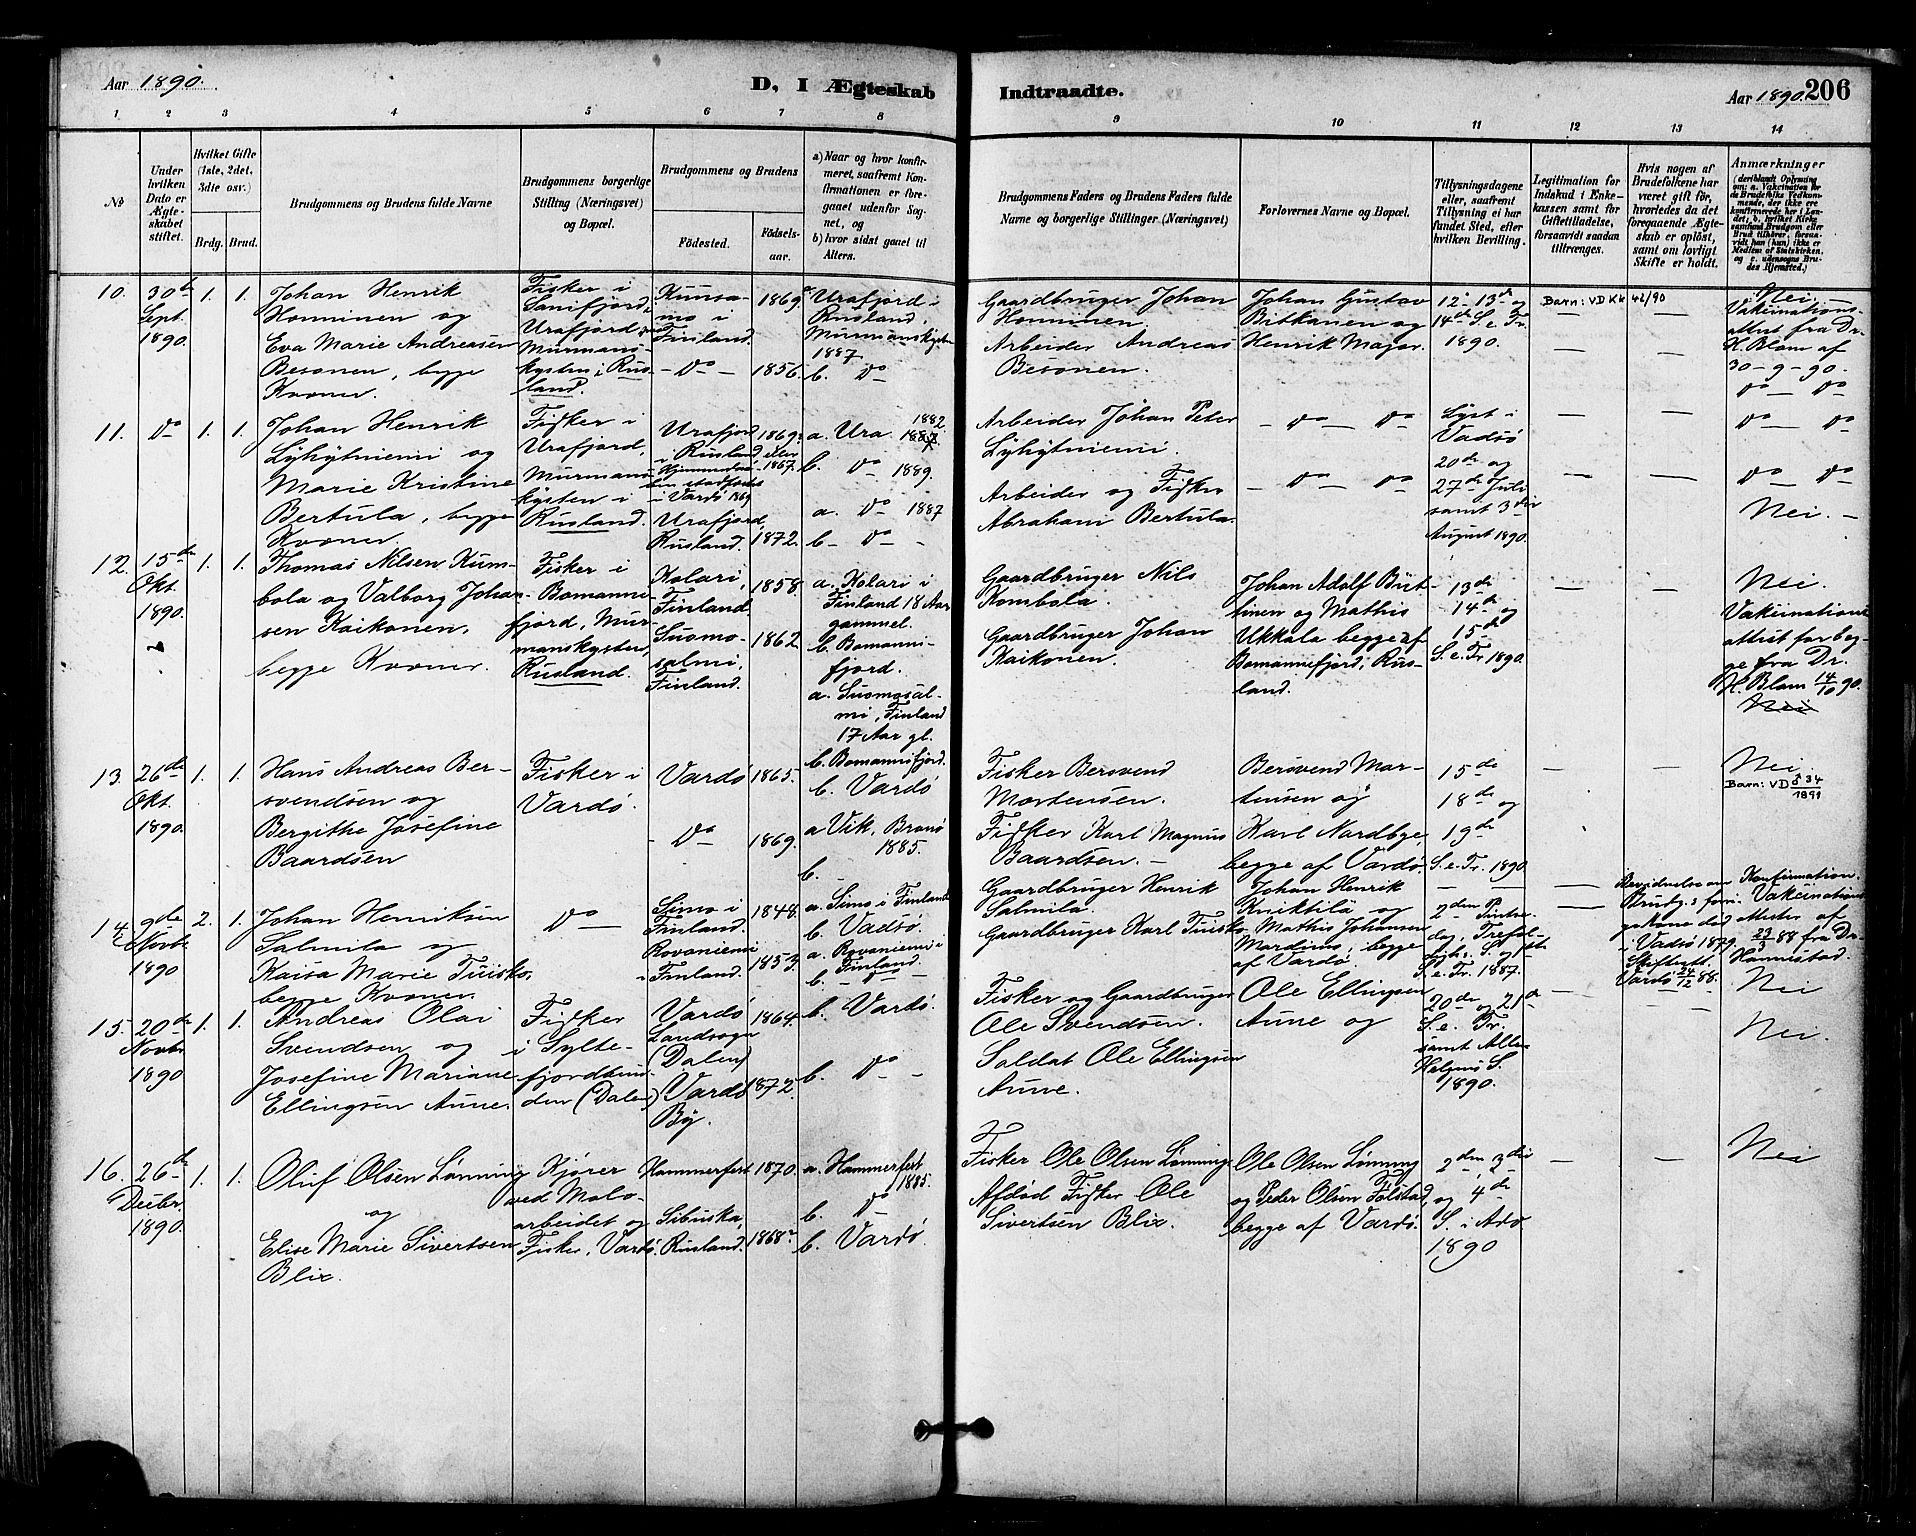 Aar 1890.
D, I Ægteskab
1 2 3 4 5 6 7 8
No
Under hvilken Dato er Ægteskabet stiftet.
Hvilket Gifte (1ste, 2det, 3die osv.)
Brdg. Brud.
Brudgommens og Brudens fulde Navne
Brudgommens borgerlige Stilling (Næringsvei) og Bopæl.
Brudgommens og Brudens
Födested. Födselsaar.
a) Naar og hvor konfirmeret, saafremt Konfirmationen er foregaaet udenfor Sognet, og
b) hvor sidst gaaet til Alters.
10. 30de Sept. 1890. 1. 1.
Johan Henrik
Honninen og
Eva Marie Andreasen
Besonen, begge
Kvæner.
Fisker i
Urafjord,
Murmanskysten i Rusland.
Kuusamo i Finland. 1869
— do — 1856.
a. Urafjord i
Rusland,
Murmanskysten
1887
b. do
11. do 1. 1.
Johan Henrik
Lÿhÿtniemi og
Marie Kristine
Bertula, begge
Kvæner.
Fisker i
Urafjord,
Murmanskysten i
Rusland.
Urafjord i Rusland 1869 eller 1867.
i Vardö 1869
Urafjord,
Rusland. 1872.
a. Ura. 1882
b. do 1889.
a. do 1887
b — do —
12. 15de Okt. 1890. 1. 1.
Thomas Nilsen Kum-
bola og Valborg Johan-
sen Kaikonen,
begge Kvæner.
Fisker i
Bomanni-
fjord, Mur-
manskysten,
Rusland.
Kolari,
Finland 1858.
Suomo-
salmi,
Finland. 1862.
a. Kolari i
Finland 18 Aar
gammel.
b. Bomanni-
fjord.
a. Suomosal-
mi, Finland
17 Aar gl.
b. Bomannifjord.
13. 26de Okt. 1890. 1. 1.
Hans Andreas Ber-
svendsen og
Bergithe Josefine
Baardsen
Fisker i
Vardö.
Vardö 1865.
— do — 1869.
b. Vardö
a Vik, Brönö
1885.
b.
14. 9de Novbr. 1890 2. 1.
Johan Henriksen
Salmila og
Kaisa Marie Tuisko,
begge Kvæner.
do —
Simo i
Finland. 1848.
Rovaniemi
i Finland. 1853.
a. Simo i Finland
b. Vadsö.
a. Rovaniemi i
Finland.
b. — do —
15. 20de Novbr. 1890 1. 1.
Andreas Olai
Svendsen og
Josefine Mariane
Ellingsen Aune.
Fisker
i Sylte-
fjordbun-
den (Dalen)
Vardö
Landsogn
(Dalen) 1864.
Vardö
By. 1872.
b. Vardö.
b. do —
16. 26de Decbr. 1890. 1. 1.
Oluf Olsen Lönning
og
Elise Marie Sivertsen
Blix.
Kjører
ved Molo-
arbeidet og
Fisker, Vardö.
Hammerfest 1870.
Sibuska,
Rusland. 1868
a. Hammerfest
1885.
b. do
b. Vardö.
Indtraadte.
Aar 1890. 206
9 10 11 12 13 14
Brudgommens Faders og Brudens Faders fulde Navne og borgerlige Stillinger (Næringsvei)
Forlovernes Navne og Bopæl.
Tillysningsdagene eller, saafremt Tillysning ei har fundet Sted, efter hvilken Bevilling.
Legitimation for Indskud i Enkekassen samt for Giftetilladelse, forsaavidt saadan tiltrænges.
Hvis nogen af Brudefolkene har været gift för, hvorledes da det foregaaende Ægteskab er oplöst, samt om lovligt Skifte er holdt.
Anmærkninger
(deriblandt Oplysning om: a. Vakcination for de Brudefolks Vedkommende, der ikke ere konfirmerede her i Landet; b. hvilket Kirkesamfund Brudgom eller Brud tilhörer, forsaavidt han (hun) ikke er Medlem af Statskirken, og c. udensogns Brudes Hjemsted.)
Gaardbruger Johan
Honninen.
Arbeider Andreas
Besonen.
Johan Gustav
Bitkanen og
Henrik Major.
12te 13de og
14de S. e. Tr.
1890.
Barn: VD Kk 42/90
—
Nei —
Vakcinations-
attest fra Dr.
H. Blom af
30-9-90.
do — do
Arbeider Johan Peter
Lÿhÿtniemi.
Arbeider og Fisker
Abraham Bertula.
— do — do
— do — do
Lyst i
Vadsö
20de og
27de Juli
samt 3die
August 1890.
—
do do
do do
Nei. —
Gaardbruger Nils
Kombola.
Gaardbruger Johan
Kaikonen.
Johan Adolf Büt-
tinen og Mathis
Ukkola begge af
Bomannifjord, Rus-
land.
13de
14de og
15de
S. e. Tr. 1890.
—
Nei.
Vakcinations-
attest for beg-
ge fra Dr.
H. Blom 14/10 90.
Nei
Fisker Bersvend
Mortensen.
Fisker Karl Magnus
Baardsen. —
Bersvend Mor-
tensen og
Karl Nordbye,
begge af Vardö.
15de
18de og
19de
S. e. Tr. 1890
—
Nei.
Barn: VD S 34
1891
Gaardbruger Henrik
Salmila.
Gaardbruger Karl Tuisko
Johan Henrik
Kniktilä og
Mathis Johansen
Mardinus, begge
af Vardö.
2den Pintse-
dag, Trefol-
digh. S. og 1ste
S. e. Tr. 1887.
—
Bevidnelse om
Brudg.s forri-
ge Kone död
i Vadsö 1879.
Skifteatt.
Vardö 24/2 88.
Konfirmation.
Vakcinations
Attester af
23/3 88 fra Dr.
Hannestad.
Nei
Fisker og Gaardbruger
Ole Svendsen.
Soldat Ole Ellingsen
Aune.
Ole Ellingsen
Aune og
20de og 21de
S. e. Tr.
samt Alle
Helgens S.
1890.
—
Nei.
Fisker Ole Olsen Lönning
Afdöd Fisker Ole
Sivertsen Blix.
Ole Olsen Lönning
og Peder Olsen Folstad,
begge af Vardö.
2den 3die
og 4de
S. i Adv
1890
—
Nei